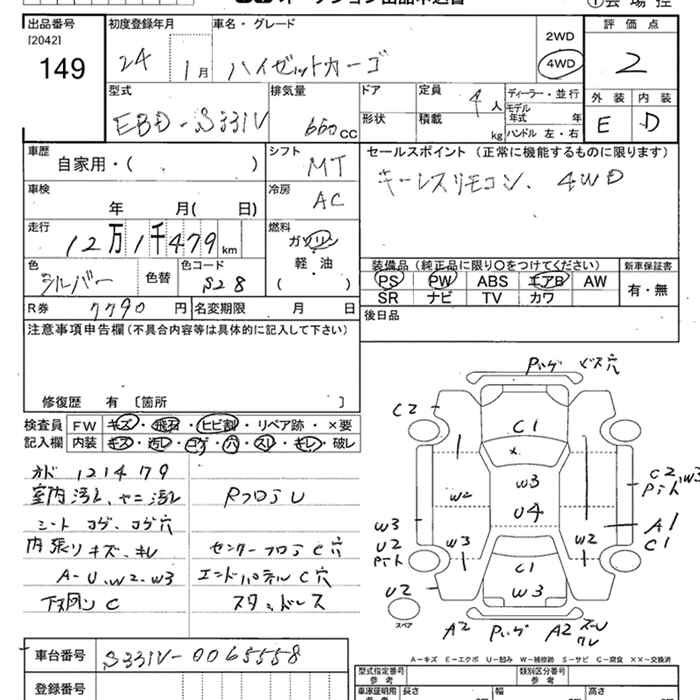 オークション出品申込書
①会場控
出品番号
[2042]
149
初度登録年月
24 1月
車名・グレード
ハイゼットカーゴ
2WD
4WD
評価点
2
型式
EBD-S331V
排気量
660cc
ドア
形状
定員
4人
積載
kg
ディーラー・並行
モデル年式 年
ハンドル 左・右
外装 内装
E D
車歴
自家用・( )
シフト
MT
セールスポイント (正常に機能するものに限ります)
キーレスリモコン. 4WD
車検
年 月( 日)
冷房
AC
走行
12万1千479km
燃料
ガソリン
軽・油
( )
色
シルバー
色替
色コード
S28
装備品 (純正品に限り○をつけてください)
新車保証書
PS PW ABS エアB AW
有・無
SR ナビ TV カワ
R券 7790円
名変期限 月 日
後日品
注意事項申告欄(不具合内容等は具体的に記入して下さい)
修復歴 有 〔箇所 〕
検査員 FW キズ・飛石・ヒビ割・リペア跡・×要
記入欄 内装 キズ・汚レ・コゲ・穴・スレ・キレ・破レ
121479
室内汚レ、ヤニ汚レ RフロアU
シートコゲ、コゲ穴
内張リキズ、キレ センターフロアC穴
A-U.W2-W3 エンドパネルC穴
下回リンC スタッドレス
Pハゲ ビス穴
C2
C1
×
W2
W3
U4
C2
Pトト W3
W3
U2
Pトト
W3
W2
A1
C1
C1
W3
U2
スペア
A2 Pハゲ A2
A-キズ E-エクボ U-凹み W-補修跡 S-サビ C-腐食 ××-交換済
車台番号 S331V-0065558
登録番号
型式指定番号
参考
類別区分番号
参考
車庫証明用
参考
長さ 幅 高さ